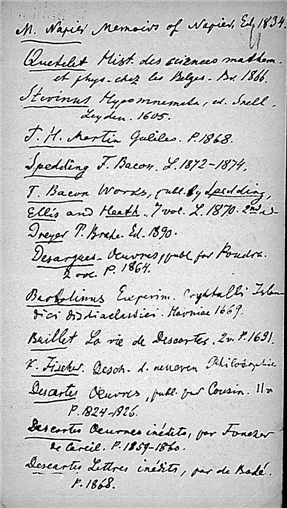 M. Napier Memoirs of Napier, Ed. 1834.
Quetelet Hist. des sciences mathem.
et phys. chez les Belges. Br. 1866
Stevinus Hypomnemata, ed. Snell.
Leyden. 1605.
T. H. Martin Galilee. P. 1868.
Spedding F. Bacon. L. 1872-1874.
F. Bacon Works, publ. by Spedding,
Ellis and Heath. 7 vol. L. 1870. 2nd ed.
Dreyer T. Brahe. Ed. 1890.
Desargues. Oeuvres, publ. par Poudra.
2 vol. P. 1864.
Bartholinus Experim. Crystalli Islan
dici disdiaclastici. Havniae 1669.
Baillet La vie de Descartes. 2 v. P. 1691.
K. Fischer. Gesch. d. neueren Philosophie
Descartes Oeuvres, publ. par Cousin. 11 v
P. 1824-1826.
Descartes Oeuvres inédits, par Foucher
de Careil. P. 1859-1860.
Descartes Lettres inédits, par de Budé.
P. 1868.